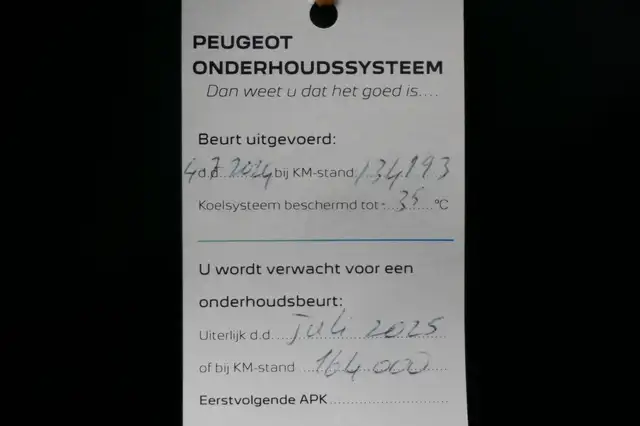 PEUGEOT
ONDERHOUDSSYSTEEM
Dan weet u dat het goed is....
Beurt uitgevoerd:
d.d. 4.7.2024 bij KM-stand 134193
Koelsysteem beschermd tot - 35 °C
U wordt verwacht voor een
onderhoudsbeurt:
Uiterlijk d.d. Juli 2025
of bij KM-stand 164.000
Eerstvolgende APK